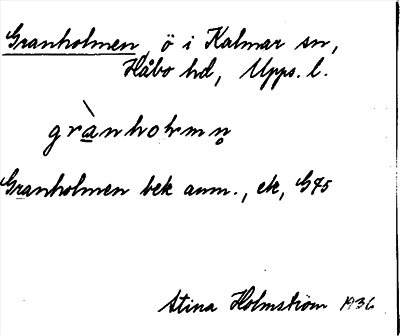 Granholmen, ö i Kalmar sn,
Håbo hd, Upps. l.
grànholmn̥
Granholmen bek anm., ek, G45
Stina Holmström 1936